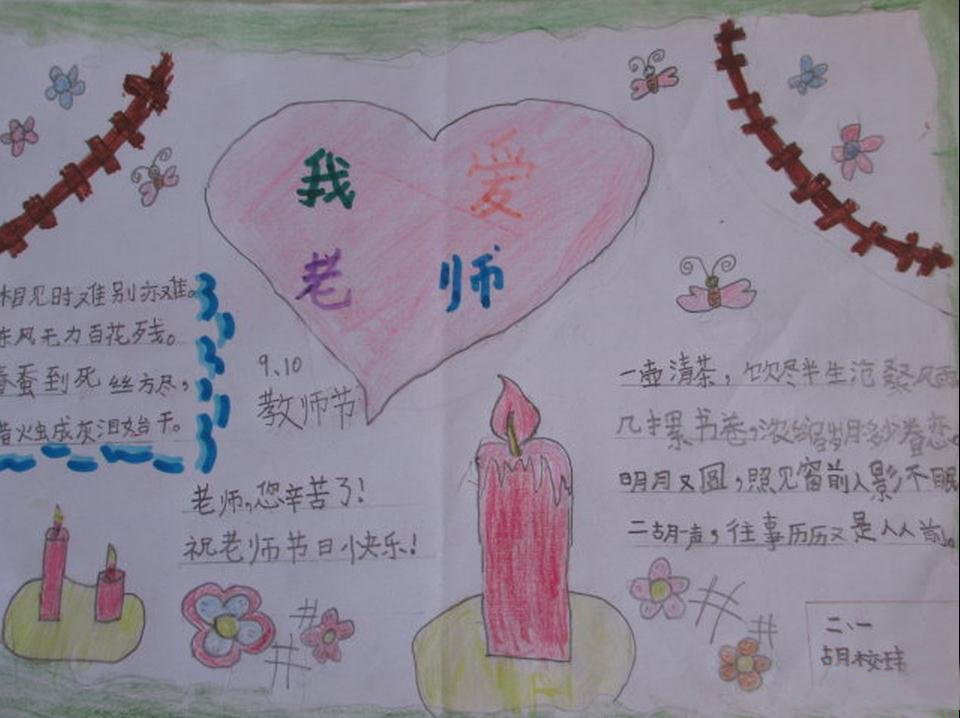 我 爱
老 师
相见时难别亦难。
东风无力百花残。
春蚕到死丝方尽,
蜡火虫成灰泪始干。
9.10
教师节
老师,您辛苦了!
祝老师节日小快乐!
一壶清茶,饮尽半生沧桑风雨
几摞书卷,浓缩岁月多少眷恋。
明月又圆,照见窗前人影不眠
二胡声,往事历历又是人人前。
二、一
胡校